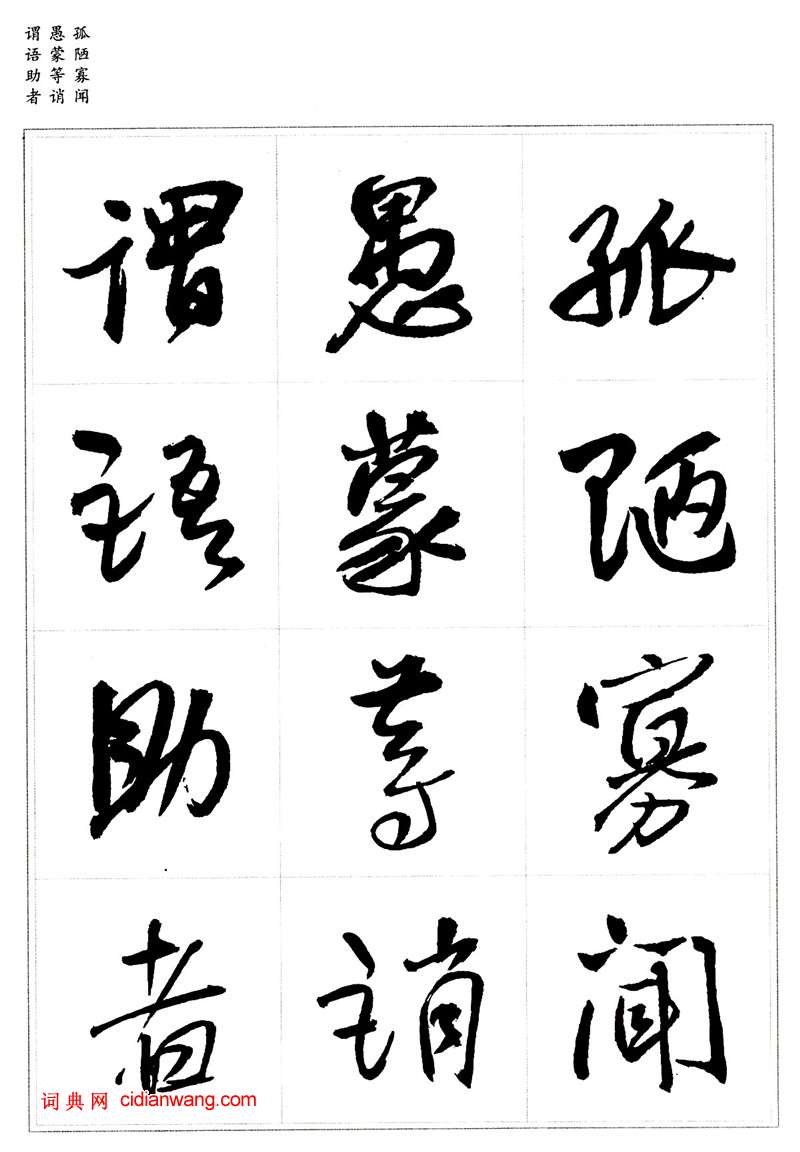 孤陋寡闻
愚蒙等诮
谓语助者
孤陋寡闻
愚蒙等诮
谓语助者
词典网 cidianwang.com